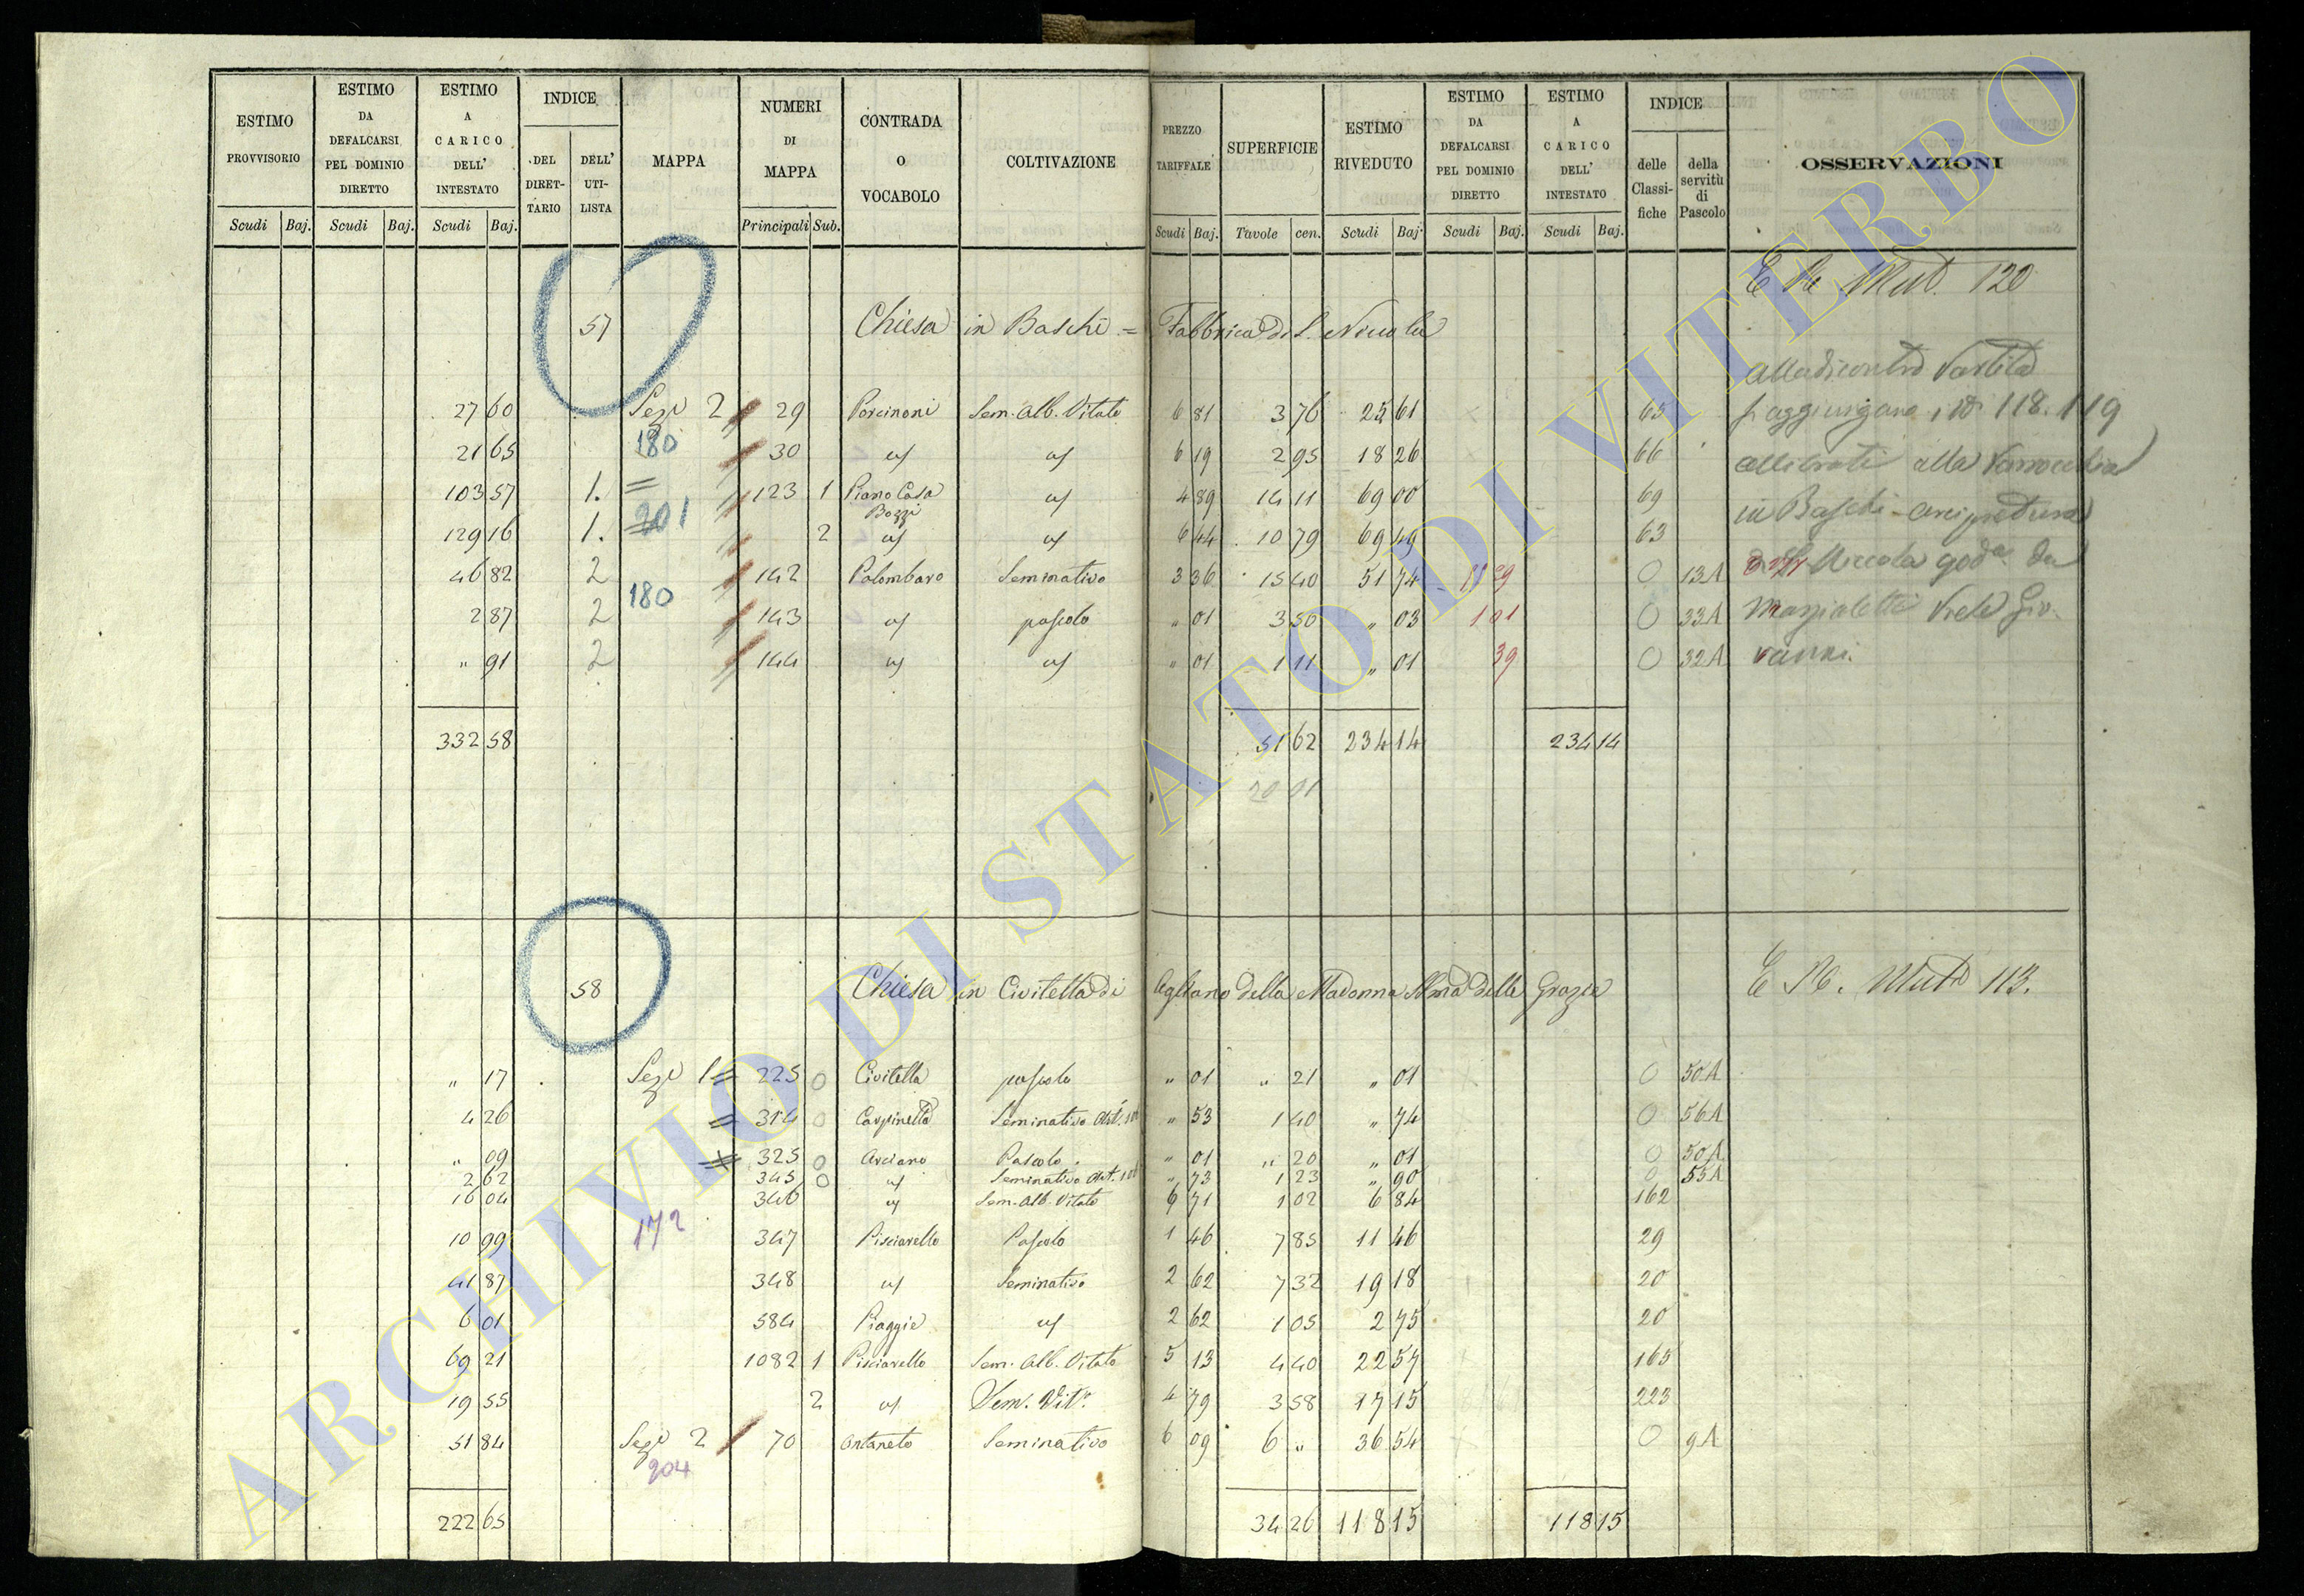 ESTIMO PROVVISORIO | ESTIMO DA DEFALCARSI PEL DOMINIO DIRETTO | ESTIMO A CARICO DELL' INTESTATO | INDICE | MAPPA | NUMERI DI MAPPA | CONTRADA O VOCABOLO | COLTIVAZIONE | PREZZO TARIFFALE | SUPERFICIE | ESTIMO RIVEDUTO | ESTIMO DA DEFALCARSI PEL DOMINIO DIRETTO | ESTIMO A CARICO DELL' INTESTATO | INDICE | OSSERVAZIONI
DEL DIRETTARIO | DELL' UTILISTA | delle Classifiche | della servitù di Pascolo
Scudi | Baj. | Scudi | Baj. | Scudi | Baj. | Principali | Sub. | Scudi | Baj. | Tavole | cen. | Scudi | Baj. | Scudi | Baj. | Scudi | Baj.
Mut. 120
57 Chiesa in Baschi = Fabbrica di S. Nicola
27 60 Sez. 2 29 Porcinoni Sem. Alb. Vitato 6 81 3 76 25 61 65
180
21 65 30 6 19 2 95 18 26 66
103 57 1. = 123 1 Piano Casa Bozzi 4 89 14 11 69 00 69
201
129 16 1. 2 6 44 10 79 69 49 63
46 82 2 142 Palombaro Seminativo 3 36 15 40 51 74 0 13A
180
2 87 2 143 pascolo " 01 3 50 " 03 1 01 0 33A
" 91 2 144 " 01 1 11 " 01 39 0 32A
alla dicontro Partita
si aggiungano i Ni 118. 119
allibrati alla Parrocchia
in Baschi
Nicola da
vanni.
332 58 51 62 234 14 234 14
20 01
58 Chiesa in Civitella di Agliano della Madonna SSma delle Grazie
Mut. 113.
" 17 Sez. 1 = 225 0 Civitella pascolo " 01 " 21 " 01 0 50A
4 26 = 314 0 Carpinella Seminativo " 53 1 40 " 74 0 56A
" 09 325 0 Arciano Pascolo " 01 " 20 " 01 0 50A
2 62 345 0 Seminativo " 73 1 23 " 90 0 55A
16 04 346 Sem. Alb. Vitato 6 71 1 02 6 84 162
172
10 99 347 Pisciarello Pascolo 1 46 7 85 11 46 29
41 87 348 Seminativo 2 62 7 32 19 18 20
6 01 584 Piaggie 2 62 1 05 2 75 20
69 21 1082 1 Pisciarello Sem. Alb. Vitato 5 13 4 40 22 57 165
19 55 2 Sem. Vito. 4 79 3 58 17 15 223
51 84 Sez. 2 70 Antaneto Seminativo 6 09 6 " 36 54 0 9A
204
222 65 34 26 118 15 118 15
ARCHIVIO DI STATO DI VITERBO